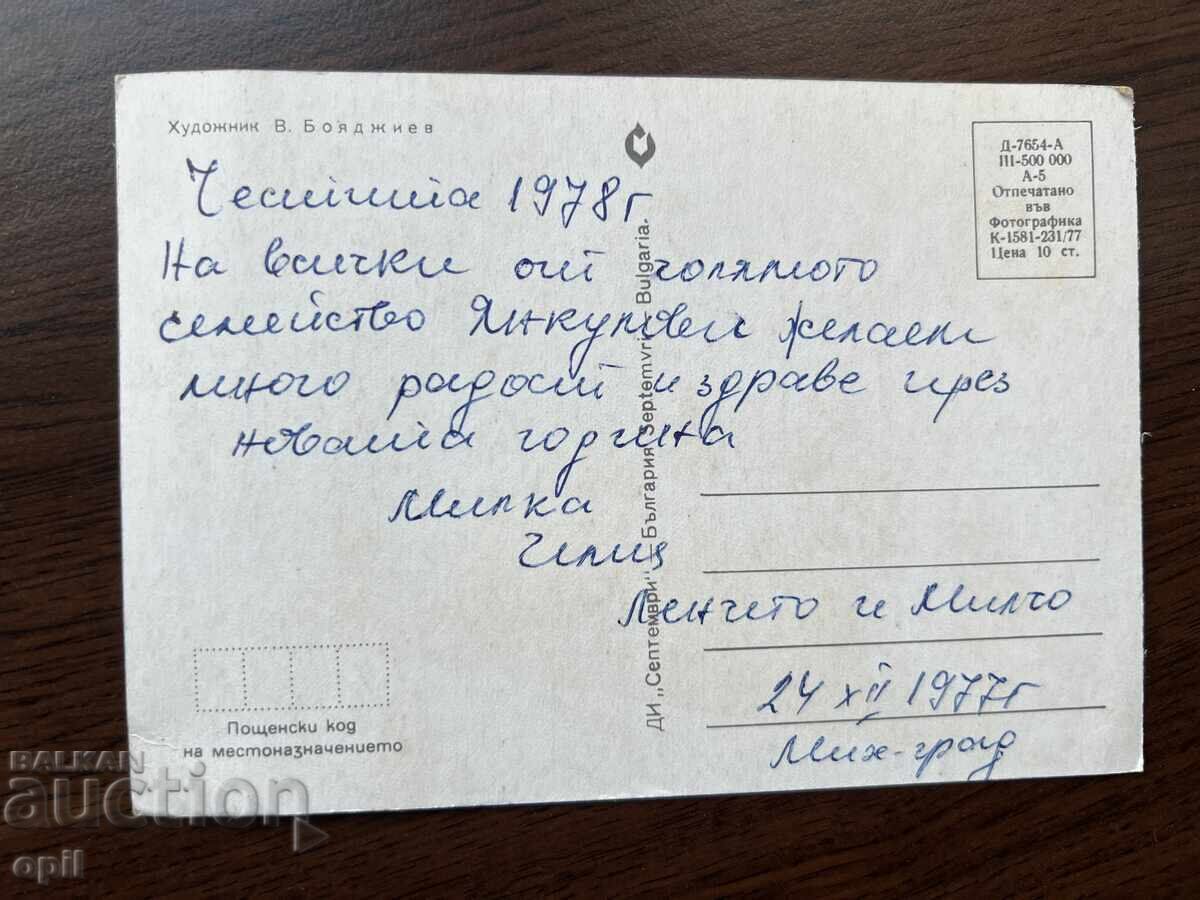 Художник В. Бояджиев
Честита 1978г
На всички от голямото
семейство Янкулови желаем
много радост и здраве през
новата година
Милка
Илиц
Ленчето и Милчо
24 XII 1977г
Мих-град
Д-7654-А
III-500 000
А-5
Отпечатано
във
Фотографика
К-1581-231/77
Цена 10 ст.
ДИ „Септември“ — България Septemvri — Bulgaria.
Пощенски код
на местоназначението
BALKAN
auction
opil